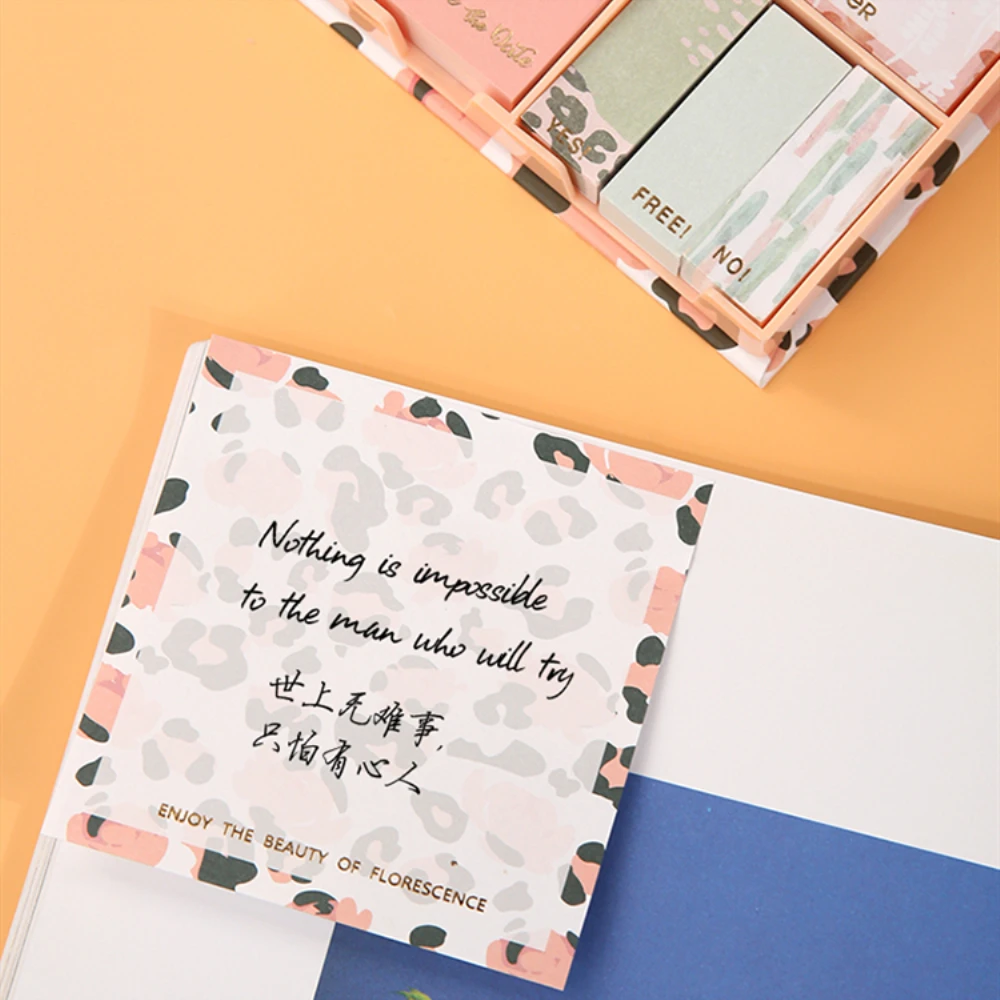 the Date
YES!
FREE!
NO!
Nothing is impossible
to the man who will try
世上无难事,
只怕有心人
ENJOY THE BEAUTY OF FLORESCENCE